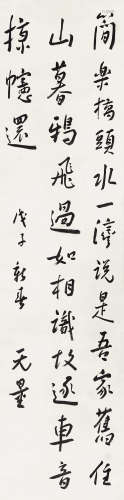 簡樂橋頭水一灣説是吾家舊住
山暮鴉飛過如相識故逐車音
掠幰還 戊子新春 无量